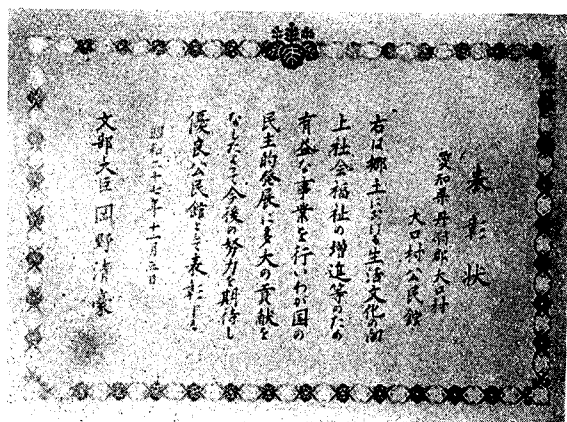 表彰状
愛知県丹羽郡大口村
大口村公民館
右は郷土における生活文化の向
上社会福祉の増進等のため
有益な事業を行いわが国の
民主的発展に多大の貢献を
なしたよって今後の努力を期待し
優良公民館として表彰する
昭和二十七年十一月三日
文部大臣 岡野清豪